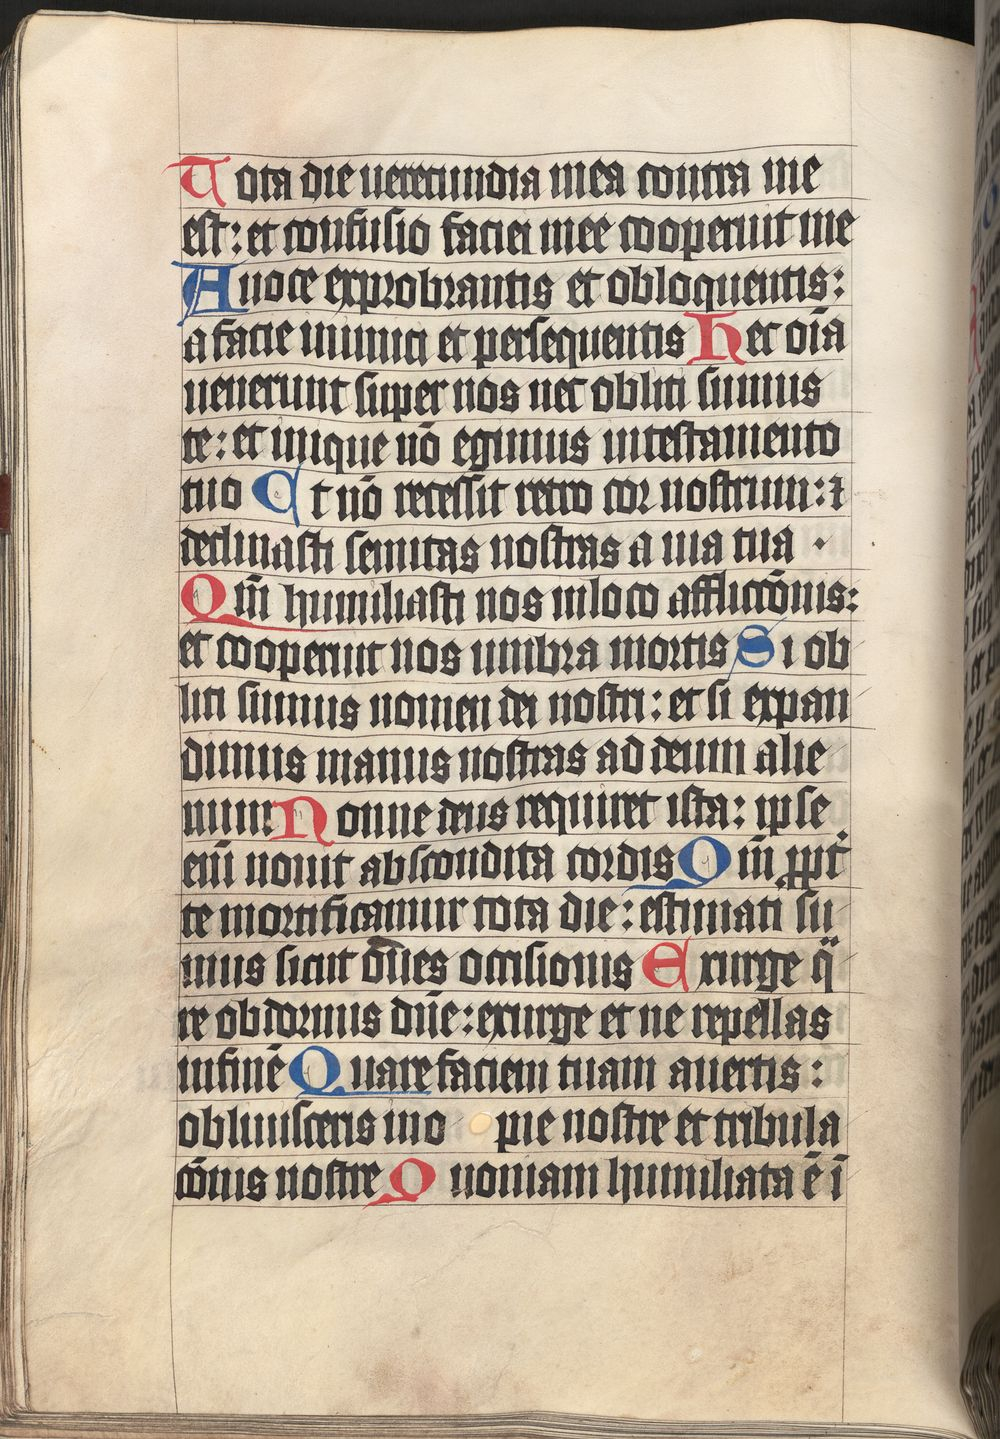 Tota die uerecundia mea contra me
est: et confusio faciei mee cooperuit me
A uoce exprobrantis et obloquentis:
a facie inimici et persequentis Hec oīa
uenerunt super nos nec obliti sumus
te: et inique nō egimus in testamento
tuo Et nō recessit retro cor nostrum: ⁊
declinasti semitas nostras a uia tua .
Qm̄ humiliasti nos in loco afflictōnis:
et cooperuit nos umbra mortis Si ob
liti sumus nomen dei nostri: et si expan
dimus manus nostras ad deum alie
num: Nonne deus requiret ista: ipse
enī nouit abscondita cordis Qm̄ ꝓpt̄
te mortificamur tota die: estimati su
mus sicut oūes occisionis Exurge q̄
re obdormis dn̄e: exurge et ne repellas
in finē Quare faciem tuam auertis:
obliuisceris ino pie nostre et tribula
cōnis nostre Quoniam humiliata ē ī